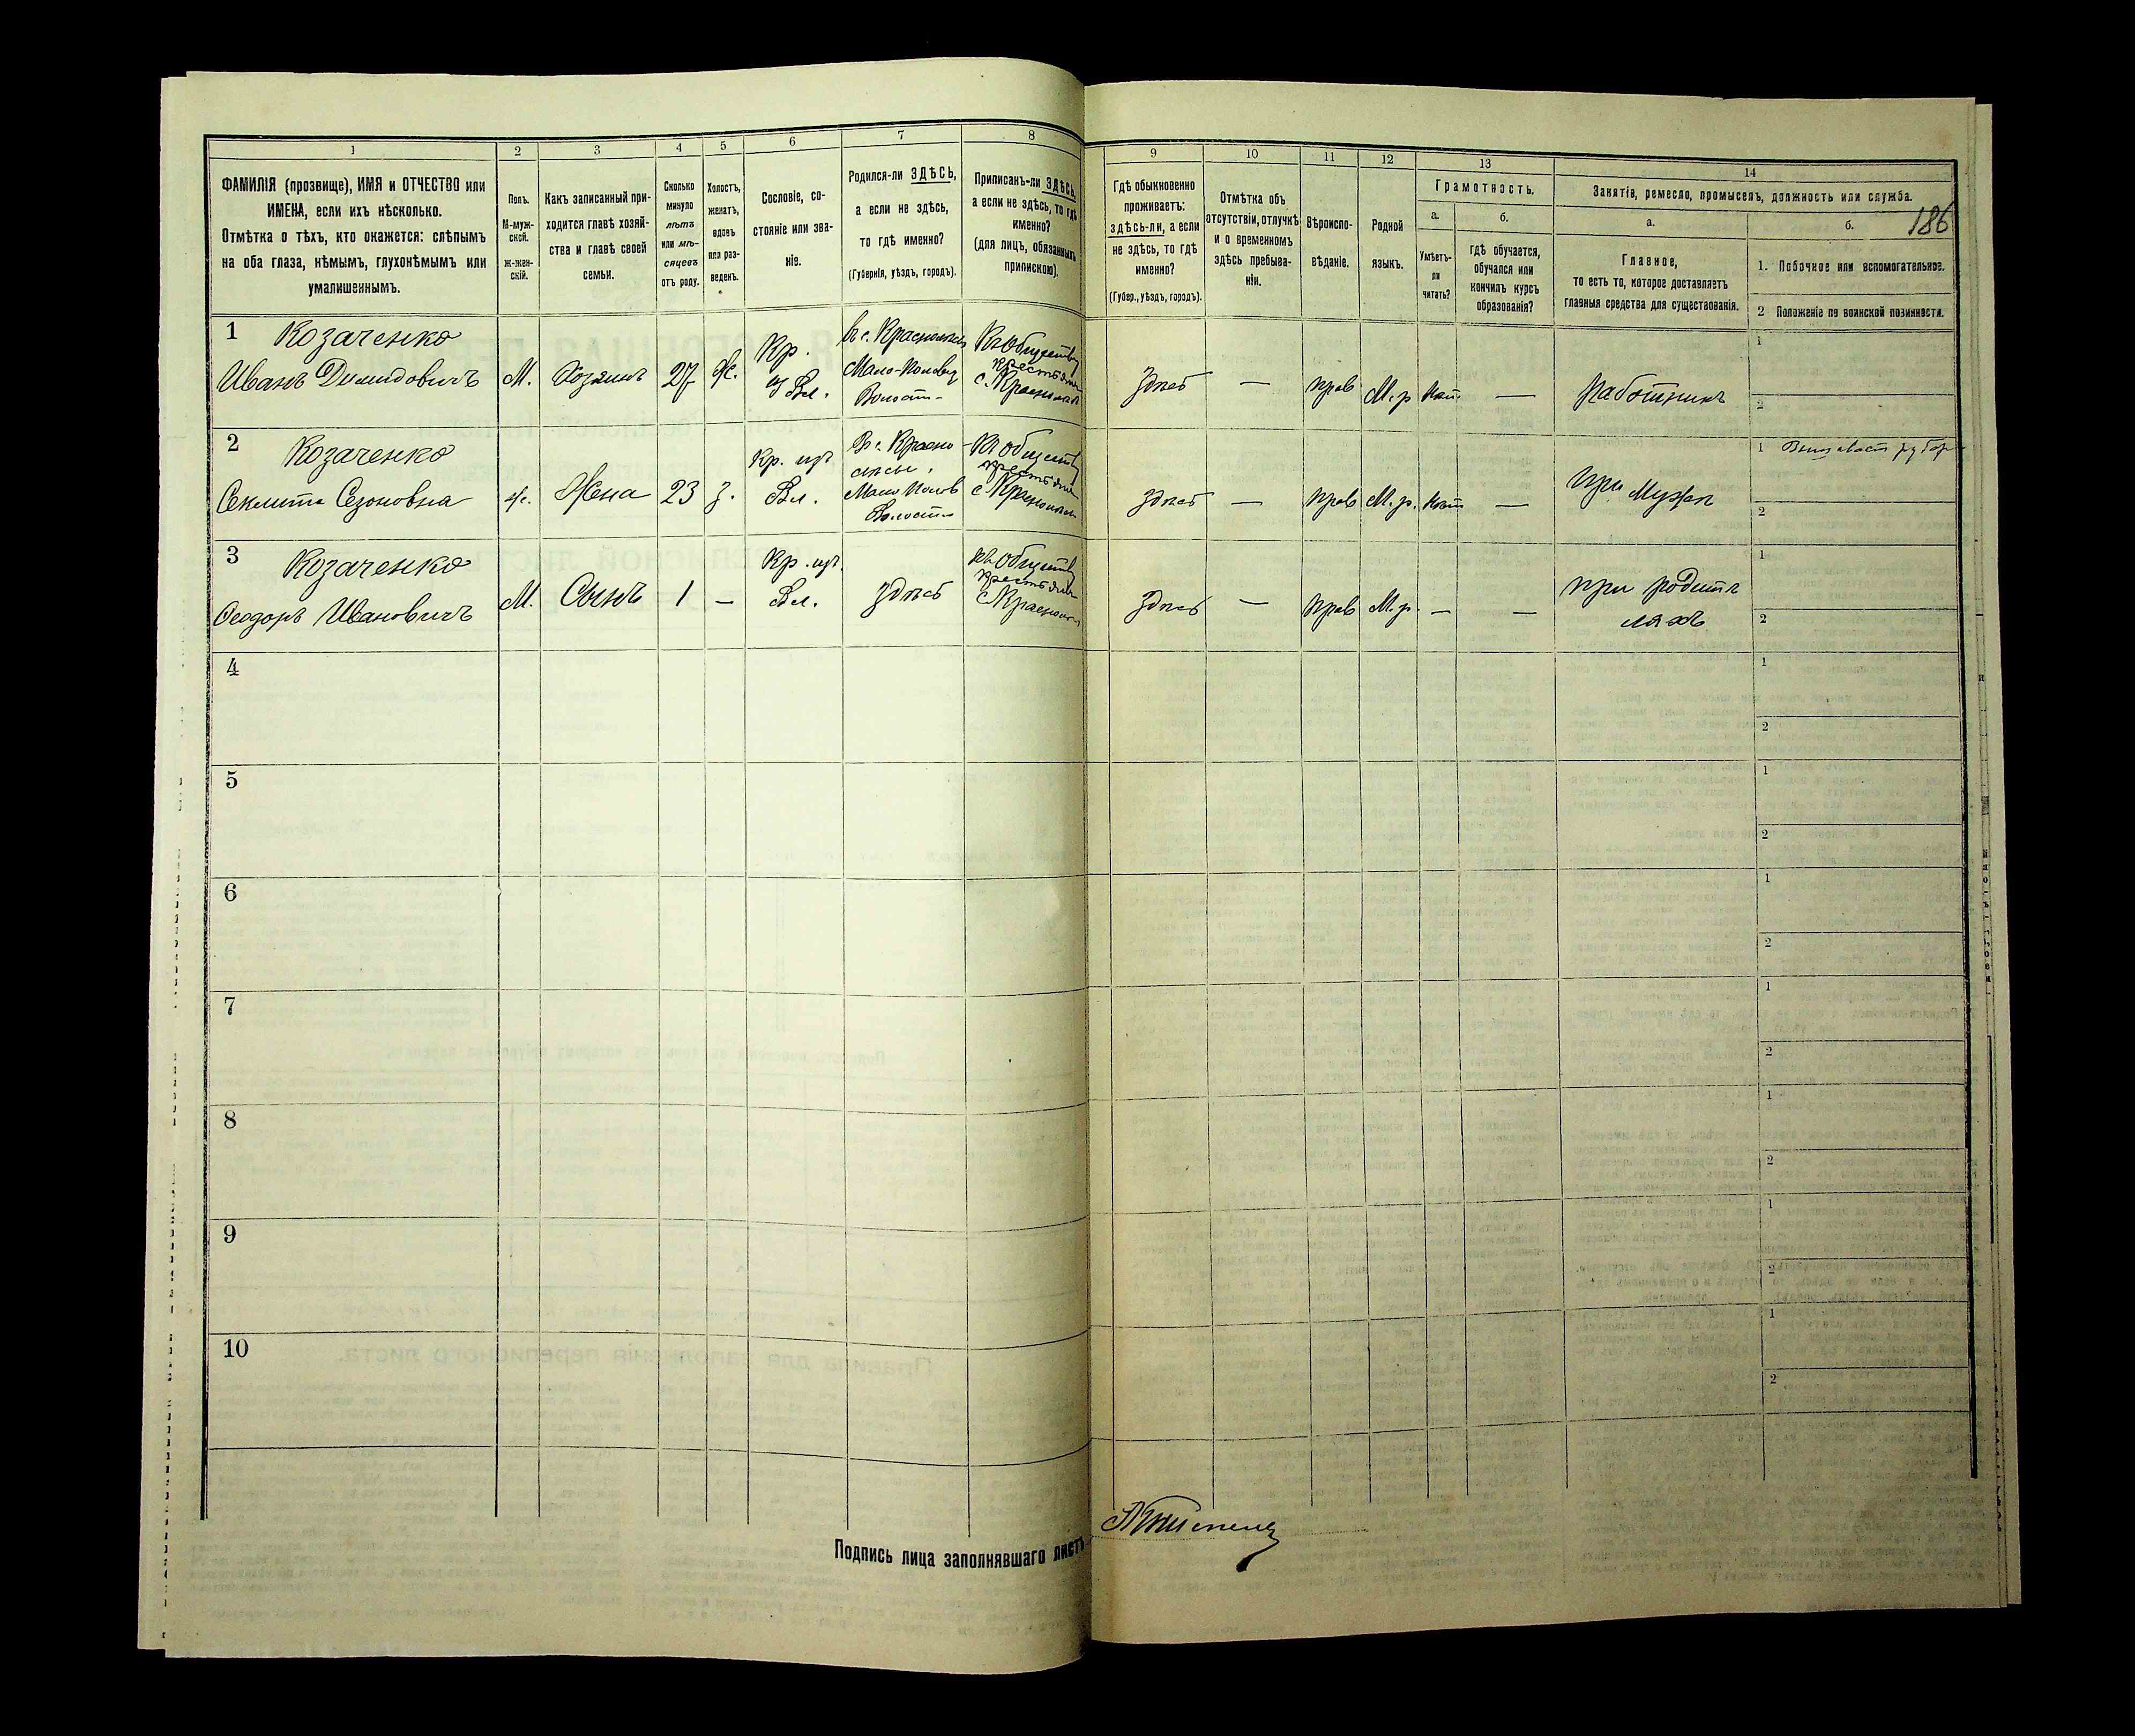 1
2
3
4
5
6
7
8
ФАМИЛІЯ (прозвище), ИМЯ и ОТЧЕСТВО или
ИМЕНА, если ихъ нѣсколько.
Отмѣтка о тѣхъ, кто окажется: слѣпымъ
на оба глаза, нѣмымъ, глухонѣмымъ или
умалишеннымъ.
Полъ.
М-муж-
ской.
ж-жен-
скій.
Какъ записанный при-
ходится главѣ хозяй-
ства и главѣ своей
семьи.
Сколько
минуло
лѣтъ
или мѣ-
сяцевъ
отъ роду.
Холостъ,
женатъ,
вдовъ
или раз-
веденъ.
Сословіе, со-
стояніе или зва-
ніе.
Родился-ли ЗДѢСЬ,
а если не здѣсь,
то гдѣ именно?
(Губернія, уѣздъ, городъ).
Приписанъ-ли ЗДѢСЬ,
а если не здѣсь, то гдѣ
именно?
(для лицъ, обязанныхъ
припискою).
9
10
11
12
13
14
Гдѣ обыкновенно
проживаетъ:
здѣсь-ли, а если
не здѣсь, то гдѣ
именно?
(Губер., уѣздъ, городъ).
Отмѣтка объ
отсутствіи, отлучкѣ
и о временномъ
здѣсь пребыва-
ніи.
Вѣроиспо-
вѣданіе.
Родной
языкъ.
Грамотность.
а.
б.
Умѣетъ-
ли
читать?
гдѣ обучается,
обучался или
кончилъ курсъ
образованія?
Занятія, ремесло, промыселъ, должность или служба.
186
а.
б.
Главное,
то есть то, которое доставляетъ
главныя средства для существованія.
1. Побочное или вспомогательное.
2 Положеніе по воинской повинности.
1 Козаченко
Иванъ Демидовичъ
М.
Хозяинъ
27
Ж.
Кр.
Вл.
Въ с.
Мало-Половец
Волост-
Къ обществу
крестьян
с.
Здѣсь
—
прав
М.р
Нѣт
—
Работникъ
1
2
2 Козаченко
Сезоновна
Ж.
Жена
23
З.
Кр. изъ
Вл.
Въ с.
Мало Полов
Волости
Къ обществу
крестьян
с.
Здѣсь
—
прав
М.р.
Нѣт
—
При Мужѣ
1
2
3 Козаченко
Ѳеодоръ Ивановичъ
М.
Сынъ
1
—
Кр. изъ
Вл.
Здѣсь
Къ обществу
крестьян
с.
Здѣсь
—
прав
М.р.
—
—
при родите
ляхъ
1
2
4
1
2
5
1
2
6
1
2
7
1
2
8
1
2
9
1
2
10
1
2
Подпись лица заполнявшаго листъ